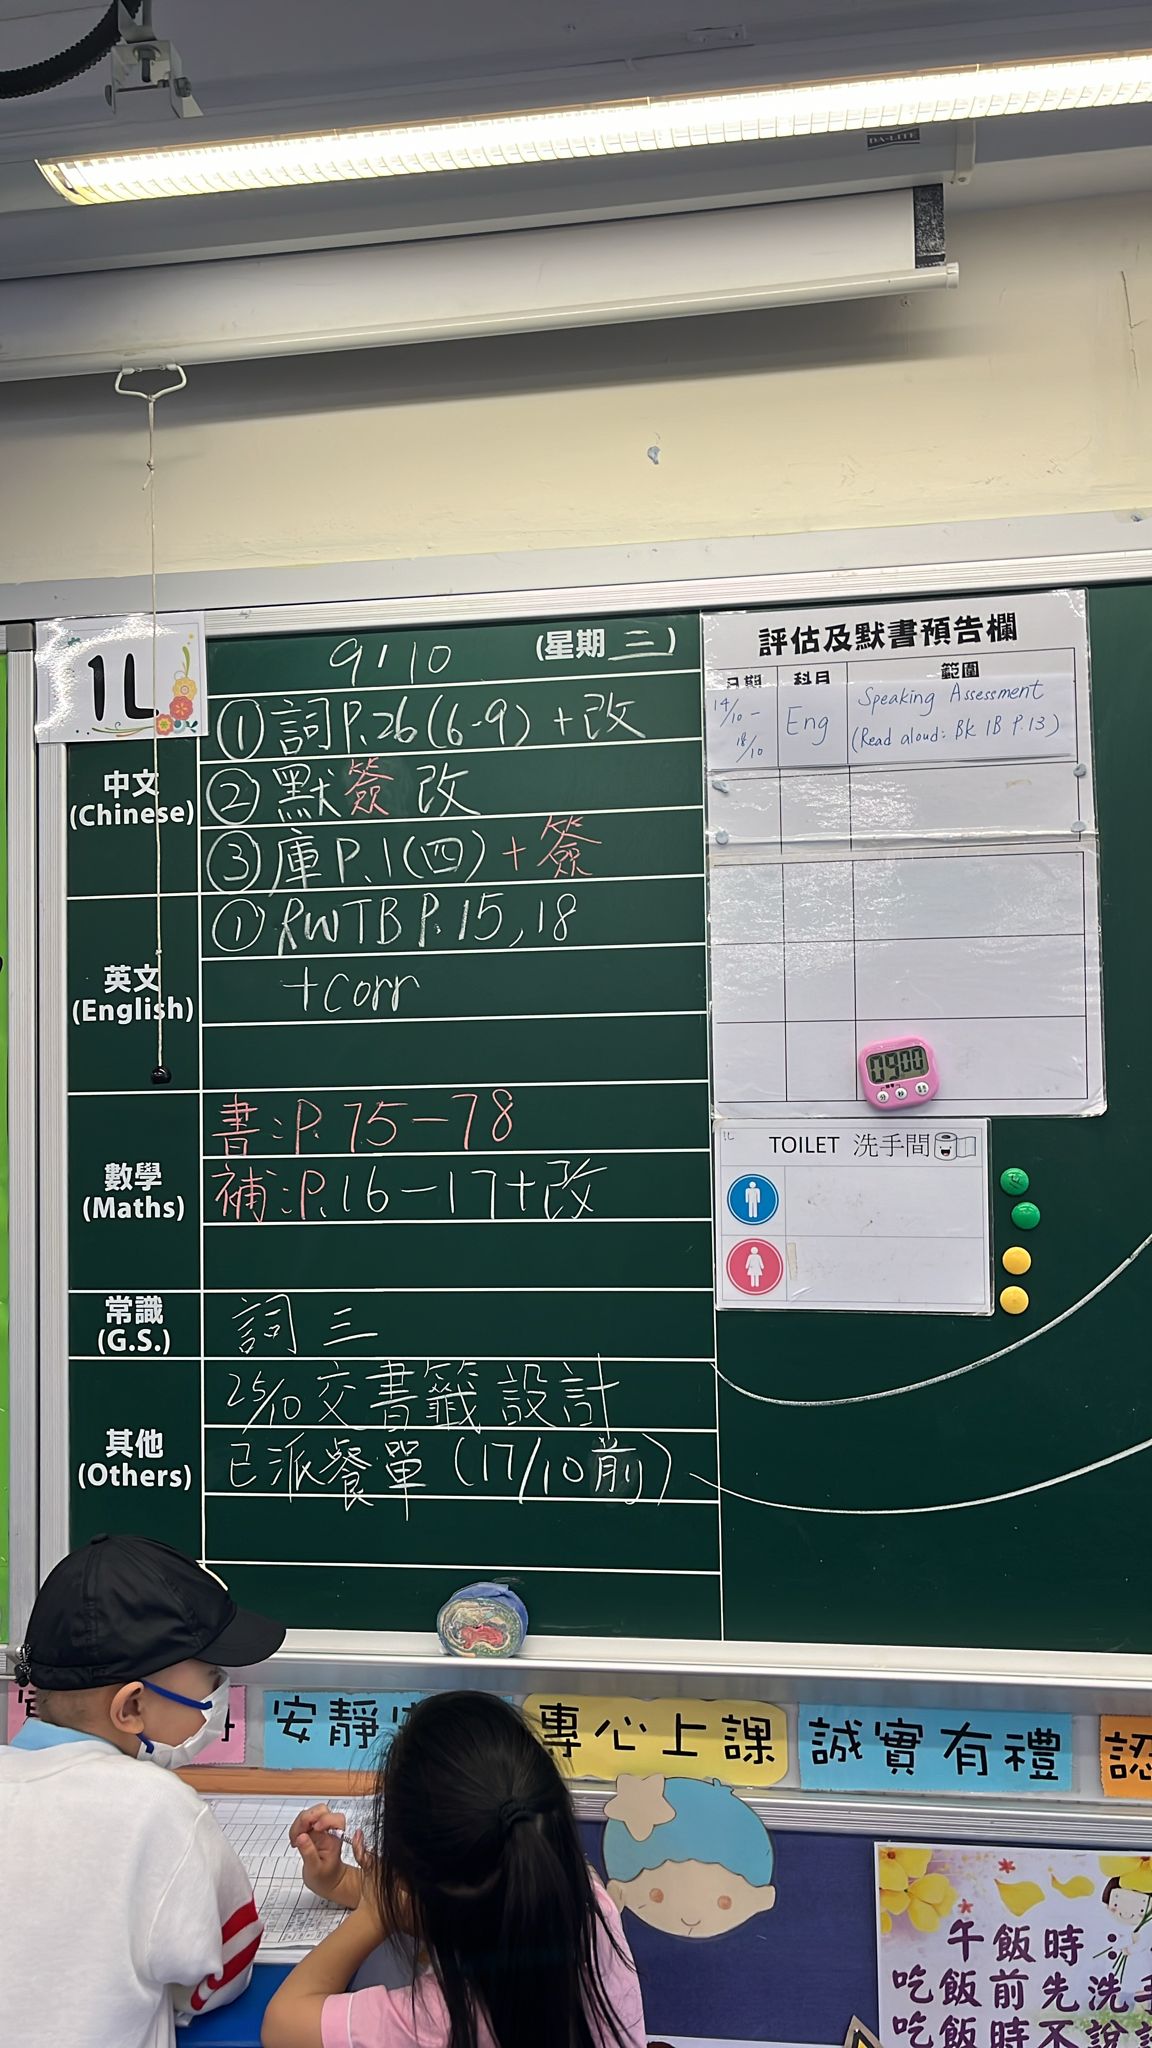 DA-LITE
1L
9/10 (星期三)
中文
(Chinese)
①詞P.26(6-9)+改
②默簽改
③庫P.1(四)+簽
英文
(English)
①RWTB P.15,18
+corr
數學
(Maths)
書:P.75-78
補:P.16-17+改
常識
(G.S.)
詞三
其他
(Others)
25/10交書籤設計
已派餐單(17/10前)
評估及默書預告欄
日期 科目 範圍
14/10-18/10 Eng Speaking Assessment
(Read aloud: Bk 1B P.13)
0900
分 秒
1L
TOILET 洗手間
安靜
專心上課
誠實有禮
認
午飯時:
吃飯前先洗手
吃飯時不說